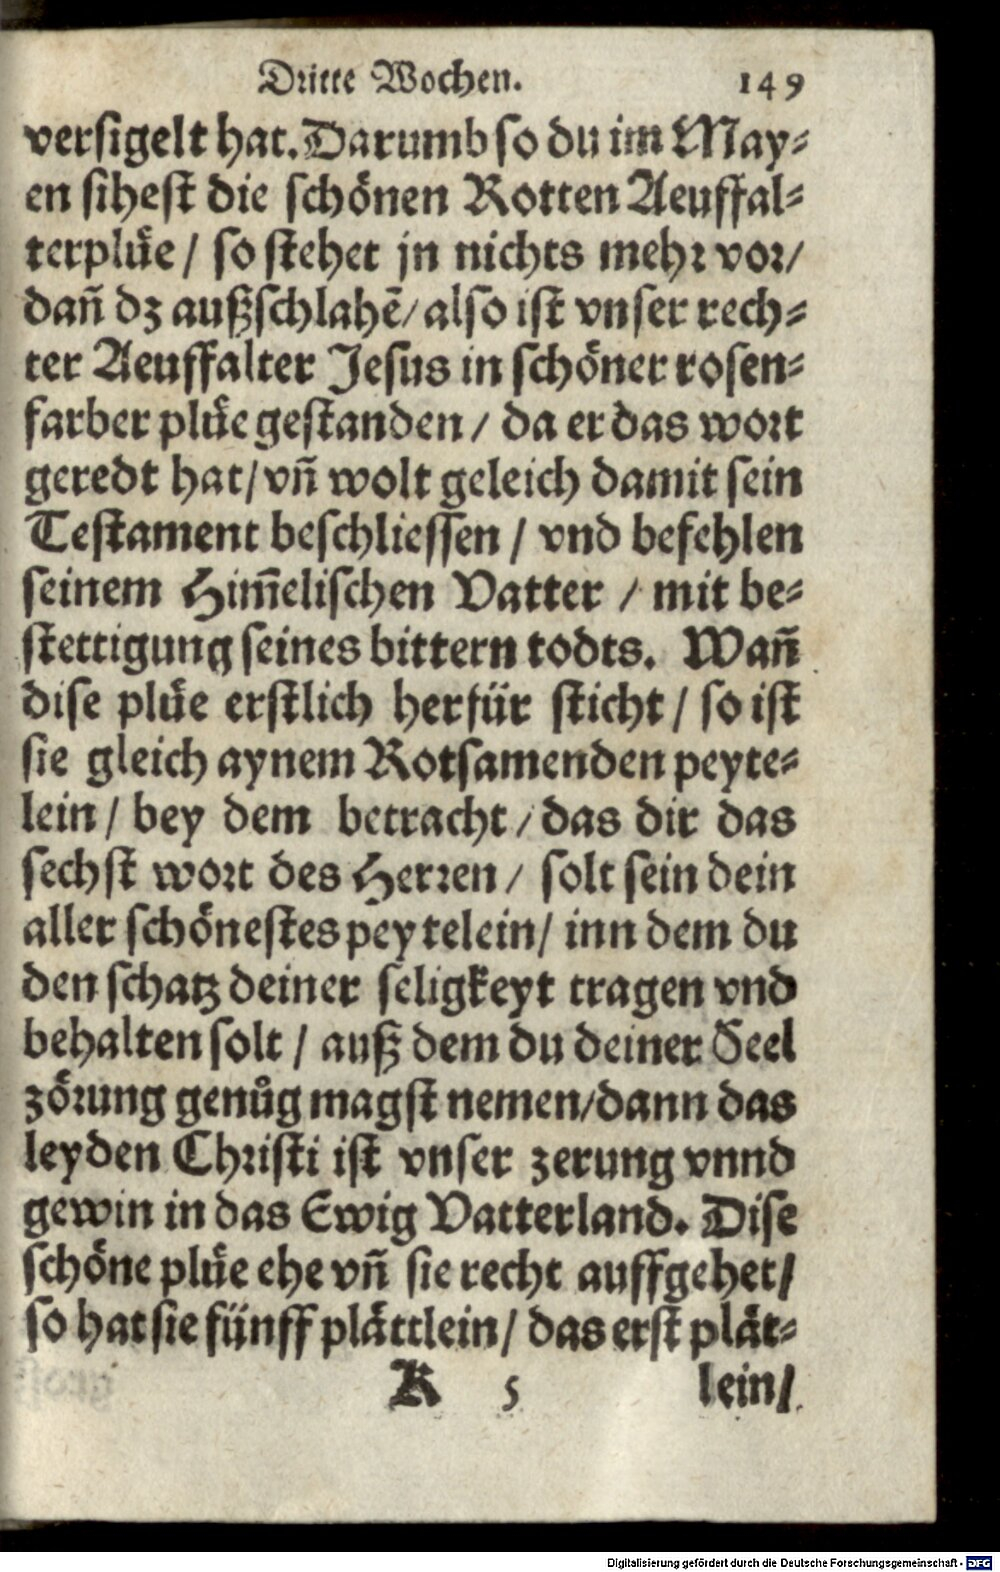 Dritte Wochen. 149
versigelt hat. Darumb so du im May⸗
en sihest die schönen Rotten Aeuffal⸗
terplüe / so stehet jn nichts mehr vor/
dañ dz außschlahẽ/ also ist vnser rech⸗
ter Aeuffalter Jesus in schöner rosen⸗
farber plüe gestanden / da er das wort
geredt hat/ vñ wolt geleich damit sein
Testament beschliessen / vnd befehlen
seinem Him̃elischen Vatter / mit be⸗
stettigung seines bittern todts. Wañ
dise plüe erstlich herfür sticht / so ist
sie gleich aynem Rotsamenden peyte⸗
lein / bey dem betracht / das dir das
sechst wort des Herren / solt sein dein
aller schönestes peytelein/ inn dem du
den schatz deiner seligkeyt tragen vnd
behalten solt / auß dem du deiner Seel
zörung genůg magst nemen/dann das
leyden Christi ist vnser zerung vnnd
gewin in das Ewig Vatterland. Dise
schöne plüe ehe vñ sie recht auffgehet/
so hat sie fünff plättlein / das erst plät⸗
K 5 lein/
Digitalisierung gefördert durch die Deutsche Forschungsgemeinschaft - DFG